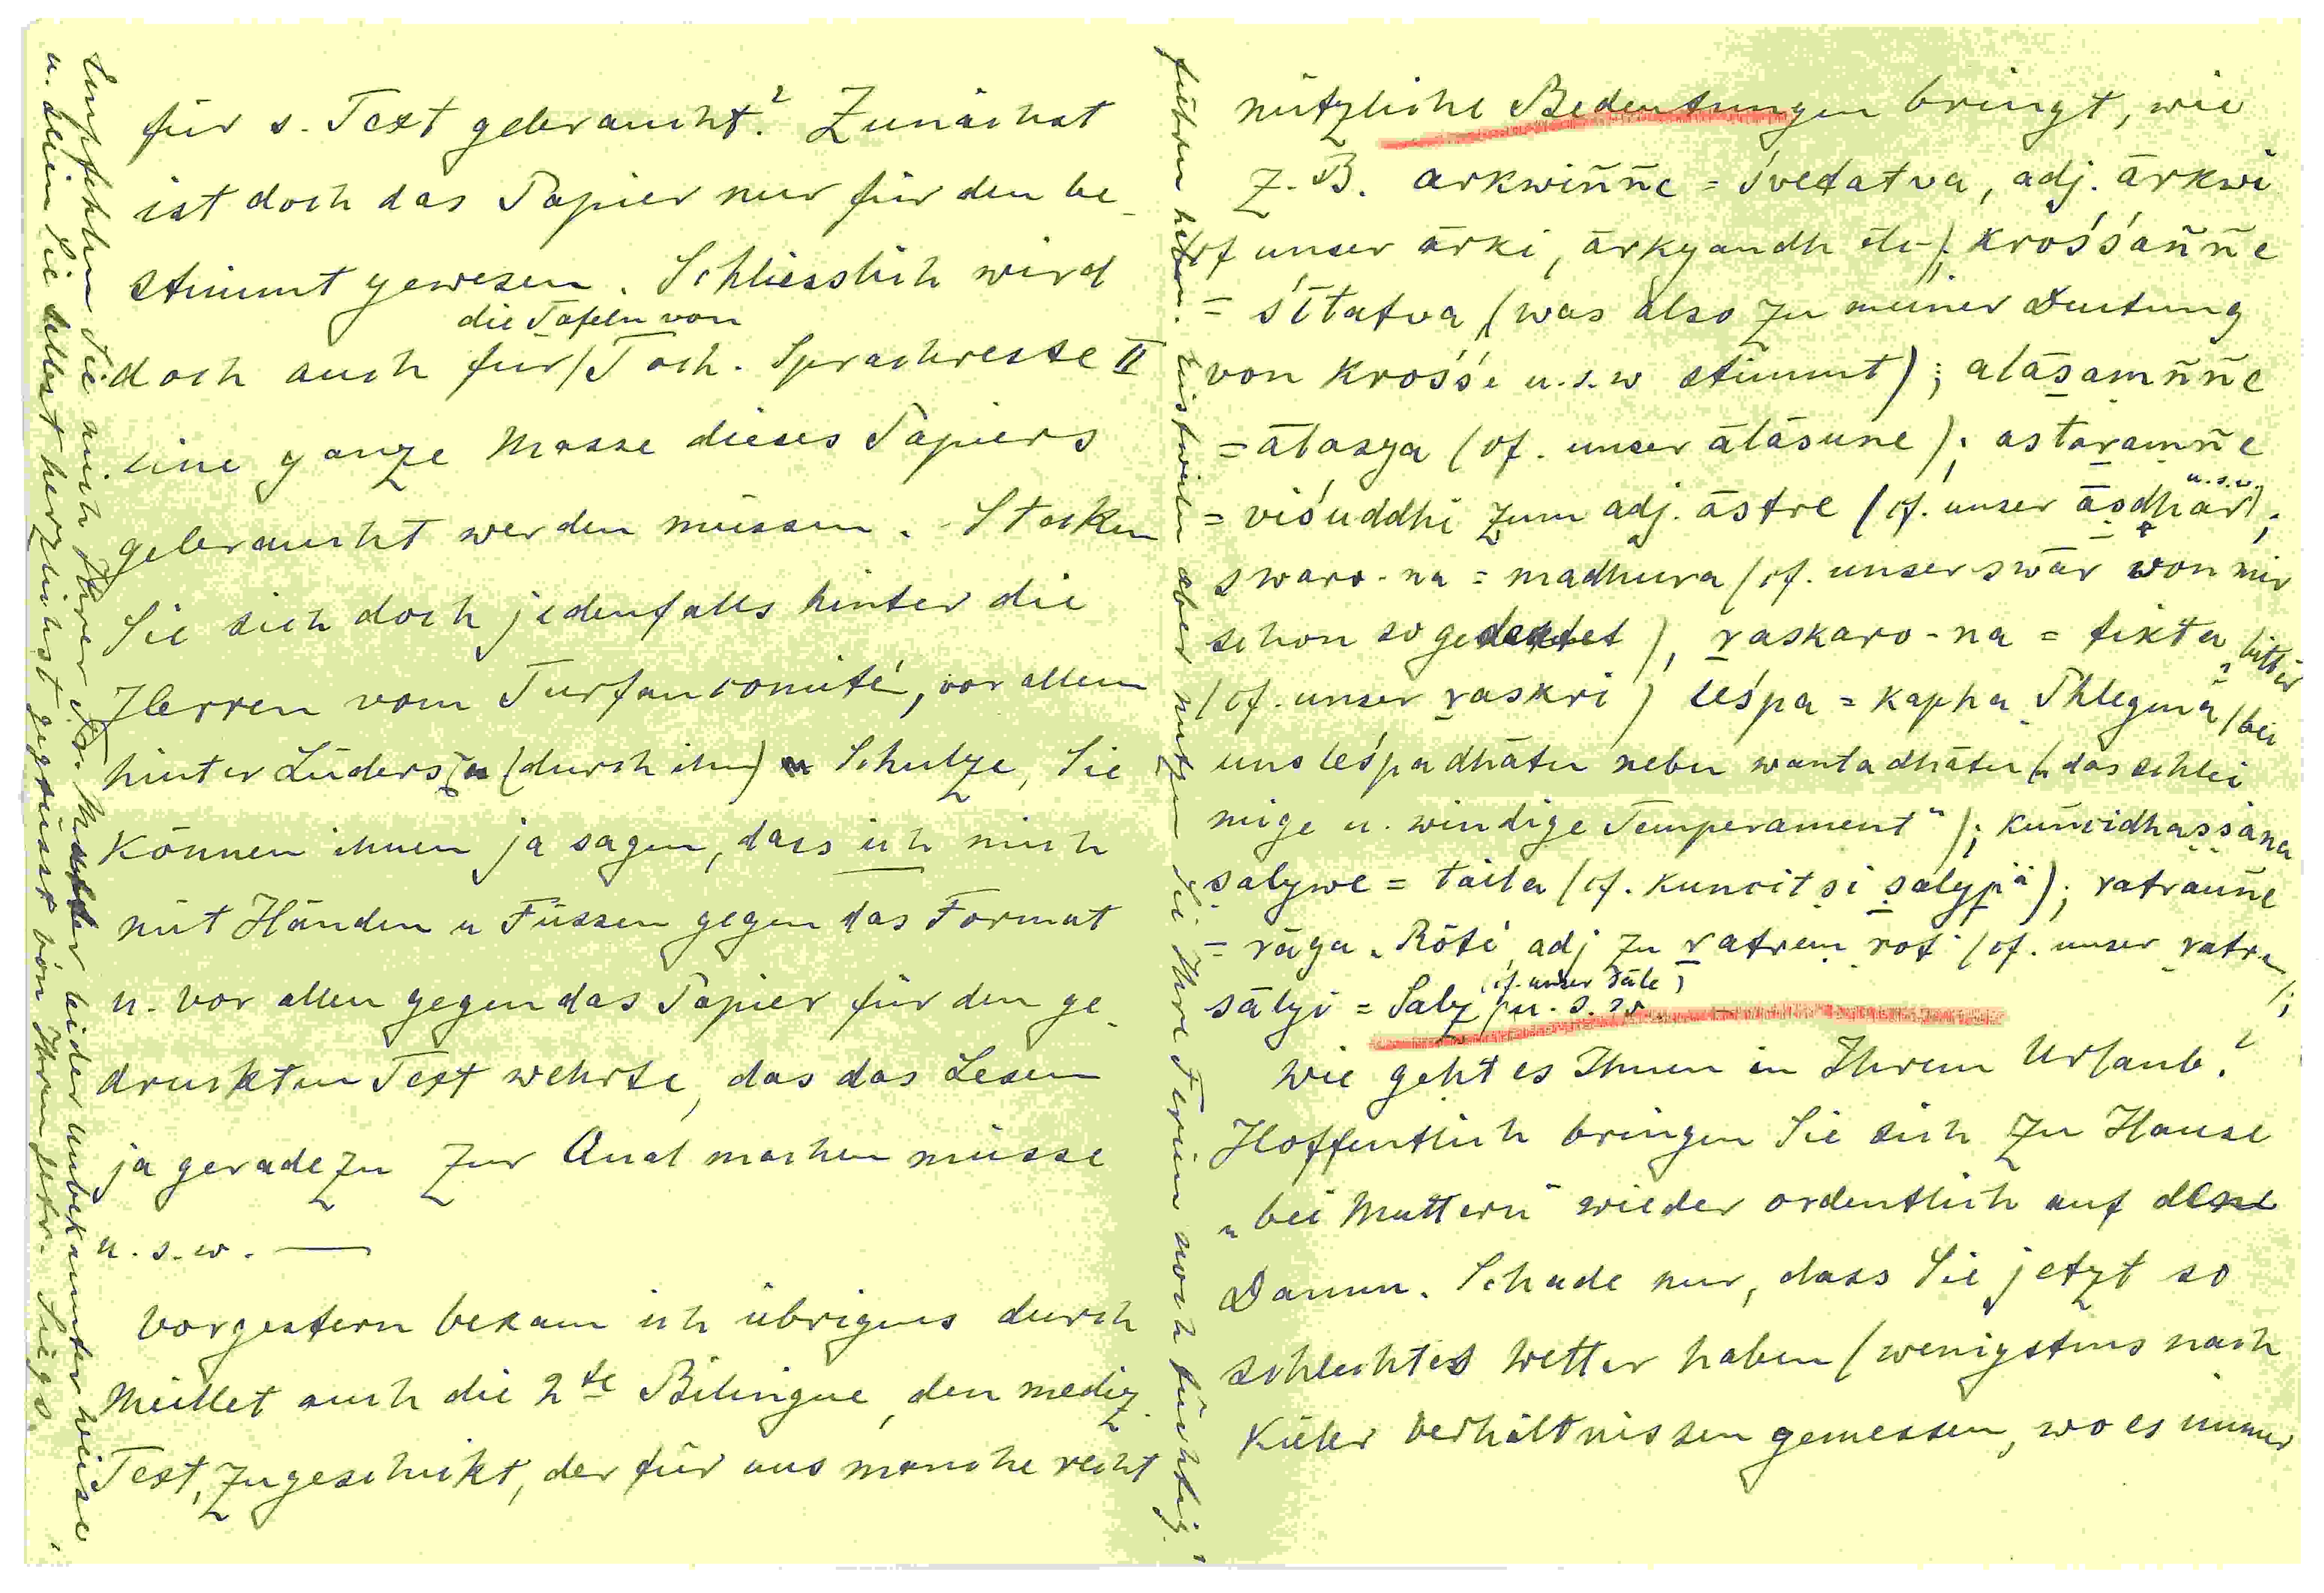 für s. Text gebraucht? Zunächst
ist doch das Papier nur für den be-
stimmt gewesen. Schliesslich wird
die Tafeln von
doch auch für Toch. Sprachreste II
eine ganze Masse dieses Papiers
gebraucht werden müssen. - Stecken
Sie sich doch jedenfalls hinter die
Herren vom Turfancomité, vor allem
hinter Lüders u (durch ihn) Schulze, Sie
können ihnen ja sagen, dass ich mich
mit Händen u Füssen gegen das Format
u. vor allen gegen das Papier für den ge-
druckten Text wehrte, das das Lesen
ja geradezu zur Qual machen müsse
u.s.w. —
Vorgestern bekam ich übrigens durch
Meillet auch die 2te Bilingue, den mediz.
Text, zugeschickt, der für uns manche recht
nützliche Bedeutungen bringt, wie
z.B. arkwiññe = śvetatva, adj. ārkwi
(cf unser ārki, ārkyandh etc); krośśaññe
= śītatva (was also zu meiner Deutung
von krośśe u.s.w stimmt); alāsamññe
= ālasya (cf. unser ālāsune); astaramñe
u.s.w.
= viśuddhi zum adj. āstre (cf. unser āsdhar);
swaro-na = madhura (cf. unser swār von mir
schon so gedeutet), raskaro-na = tikta bitter
(cf. unser raskri) leśpa = kapha Phlegma (bei
uns leśpadhātu neben wantadhātu („das schlei
mige u. windige Temperament"); kuñcidhassana
salywe = taila (cf. kuncitsi salypä); ratraüñe
= rāga „Röte", adj zu ratrem rot (cf. unser ratre);
(cf. unser sāle)
sālyi = Salz u.s.w.
Wie geht es Ihnen in Ihrem Urlaub?
Hoffentlich bringen Sie sich zu Hause
„bei Muttern" wieder ordentlich auf den
Damm. Schade nur, dass Sie jetzt so
schlechtes Wetter haben (wenigstens nach
Kieler Verhältnissen gemessen, wo es immer
Einstweilen aber nutzen Sie Ihre Ferien noch tüchtig.
Empfehlen Sie mich Ihrer Fr. Mutter leider unbekannter weise
u. seien Sie selbst herzlichst gegrüsst von Ihrem getr. Sieg.